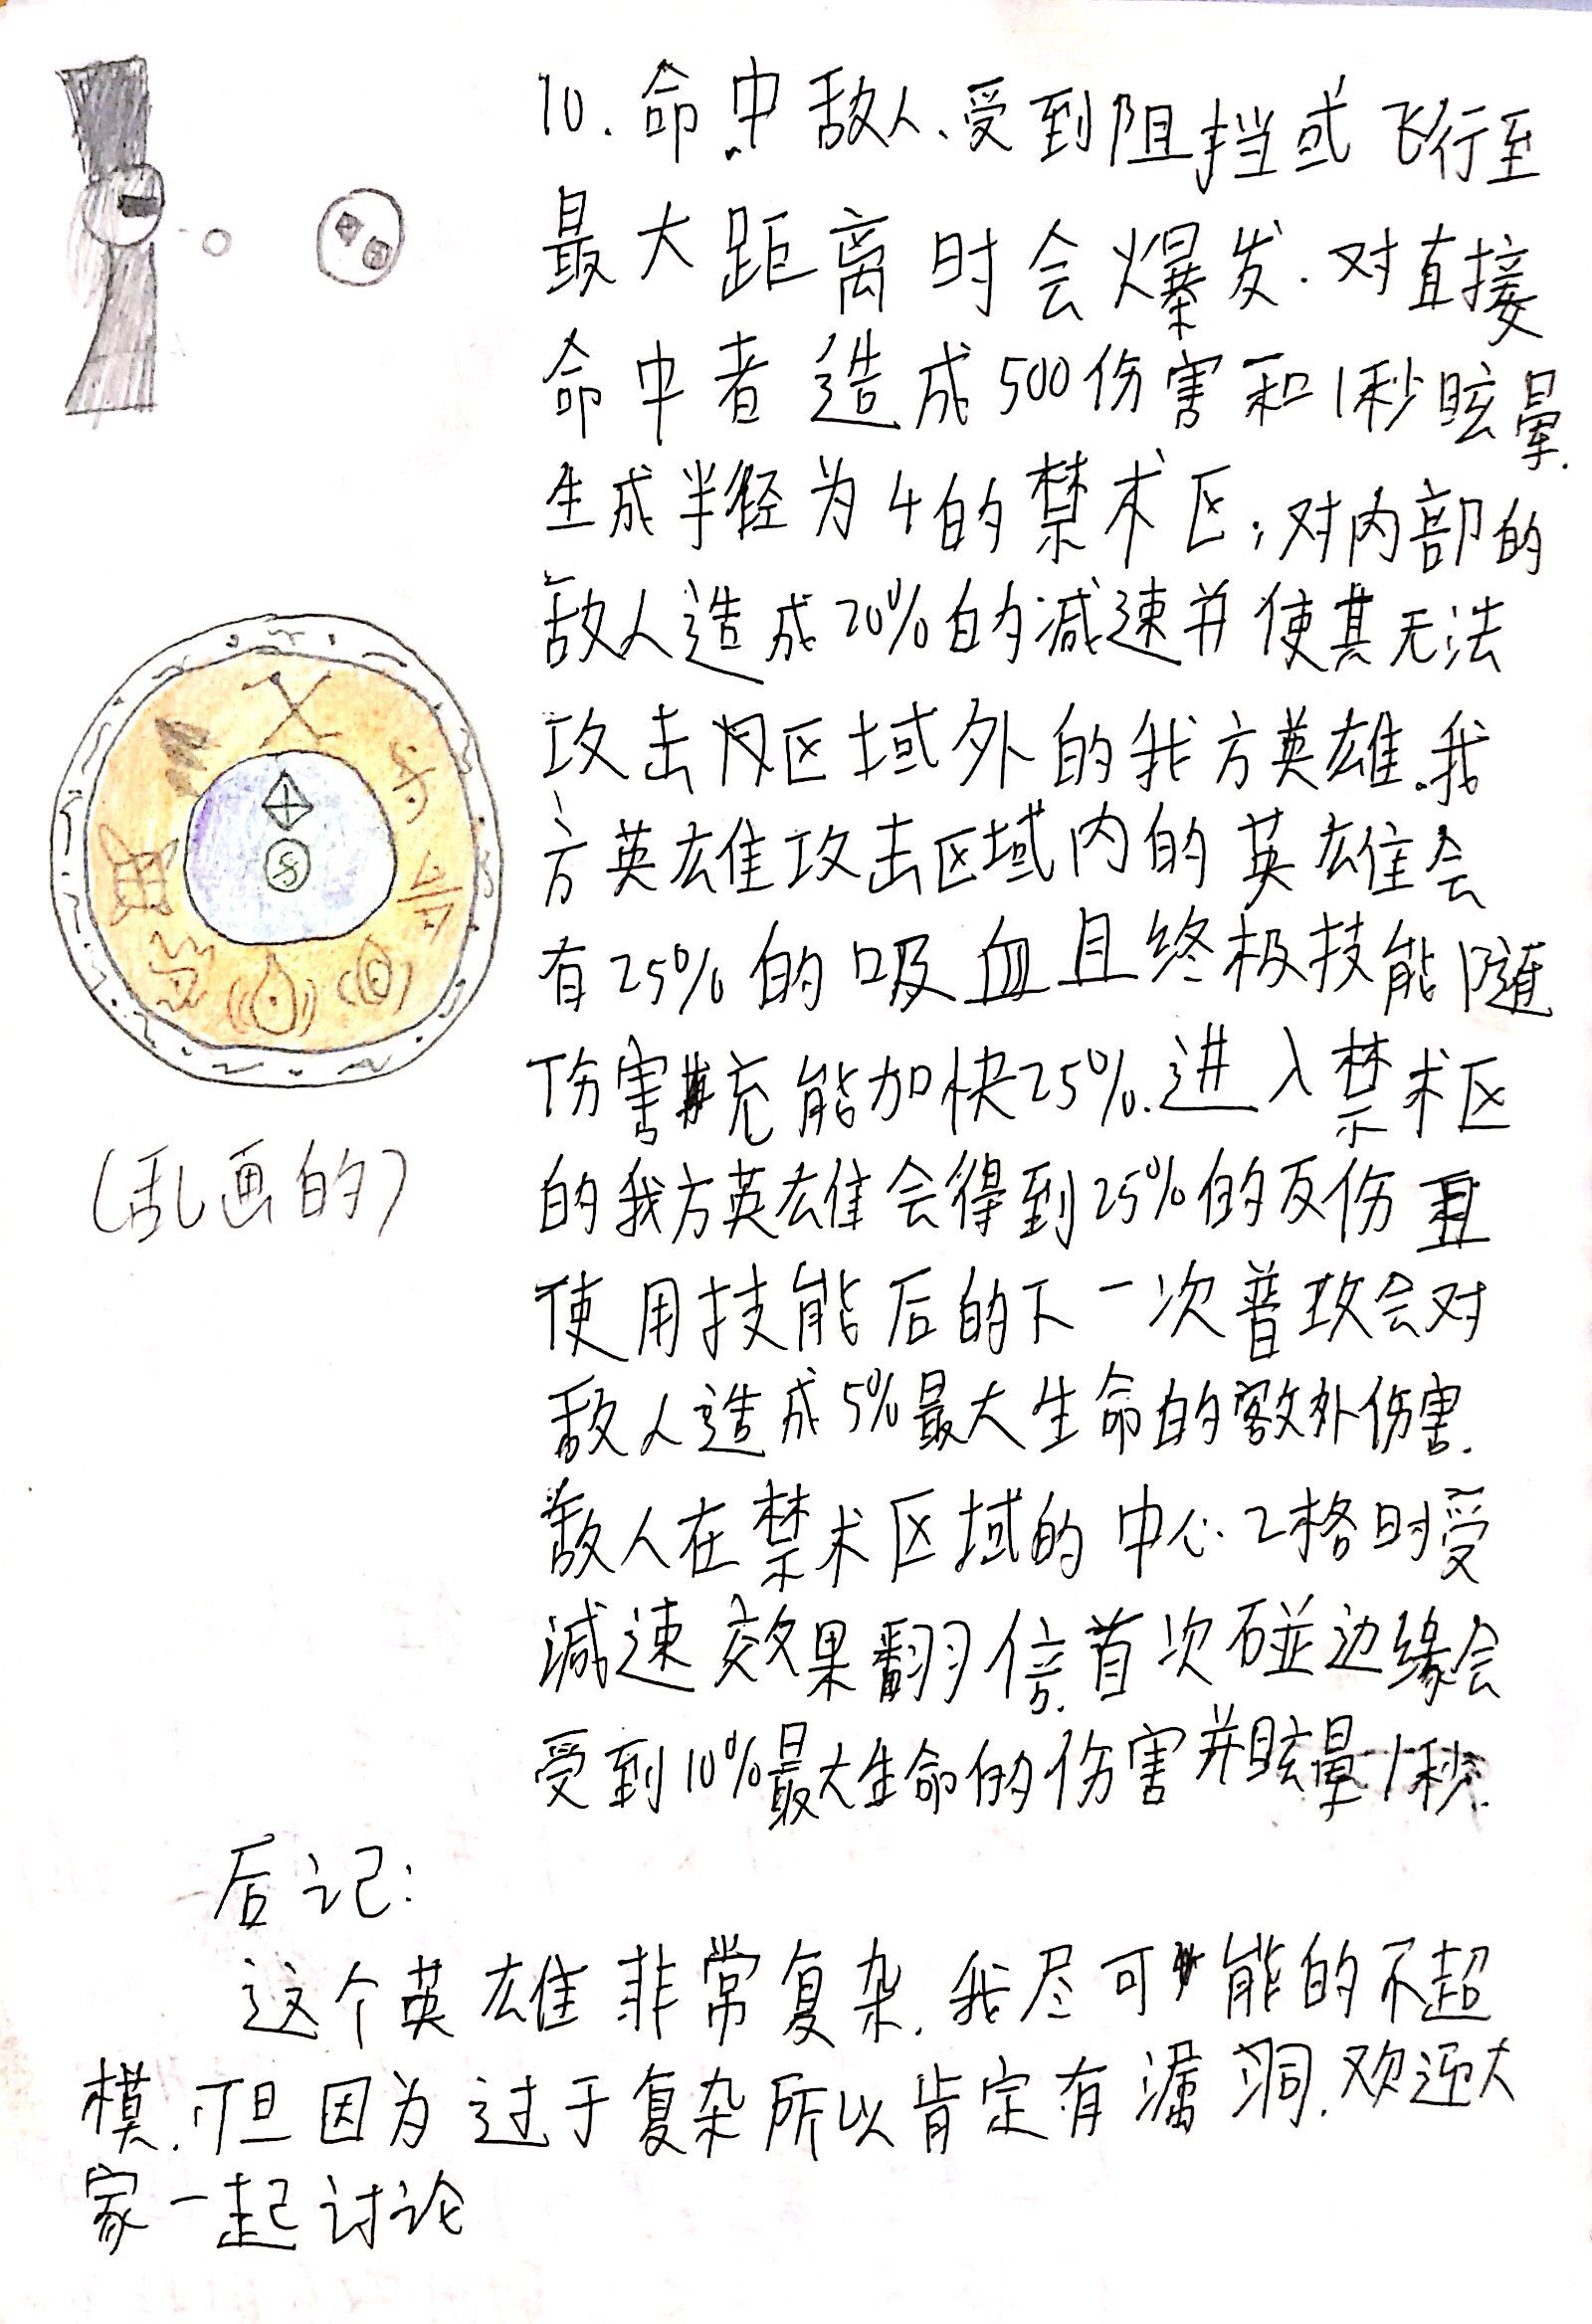 10.命中敌人、受到阻挡或飞行至
最大距离时会爆发.对直接
命中者造成500伤害和1秒眩晕.
生成半径为4的禁术区;对内部的
敌人造成20%的减速并使其无法
攻击区域外的我方英雄.我
方英雄攻击区域内的英雄会
有25%的吸血且终极技能随
伤害充能加快25%.进入禁术区
的我方英雄会得到25%的反伤且
使用技能后的下一次普攻会对
敌人造成5%最大生命的额外伤害.
敌人在禁术区域的中心2格时受
减速效果翻倍.首次碰边缘会
受到10%最大生命的伤害并眩晕1秒.
(乱画的)
后记:
这个英雄非常复杂.我尽可能的不超
模.但因为过于复杂所以肯定有漏洞.欢迎大
家一起讨论